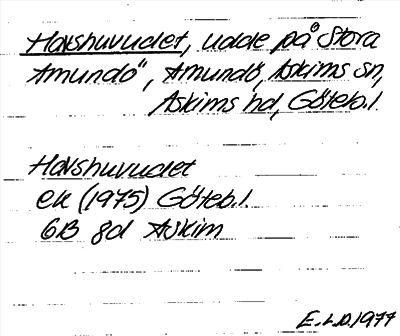 Havshuvudet, udde på Stora
Amundö, Amundö, Askims sn,
Askims hd, Göteb.l.
Havshuvudet
ek (1975) Göteb.l.
6B 8d Askim
E.L.D. 1977